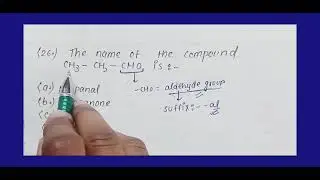 (26.) The name of the compound
CH₃ – CH₂ – CHO, is :-
(a.) panal
-CHO = aldehyde group
(b.) anone
suffix:- -al
(c